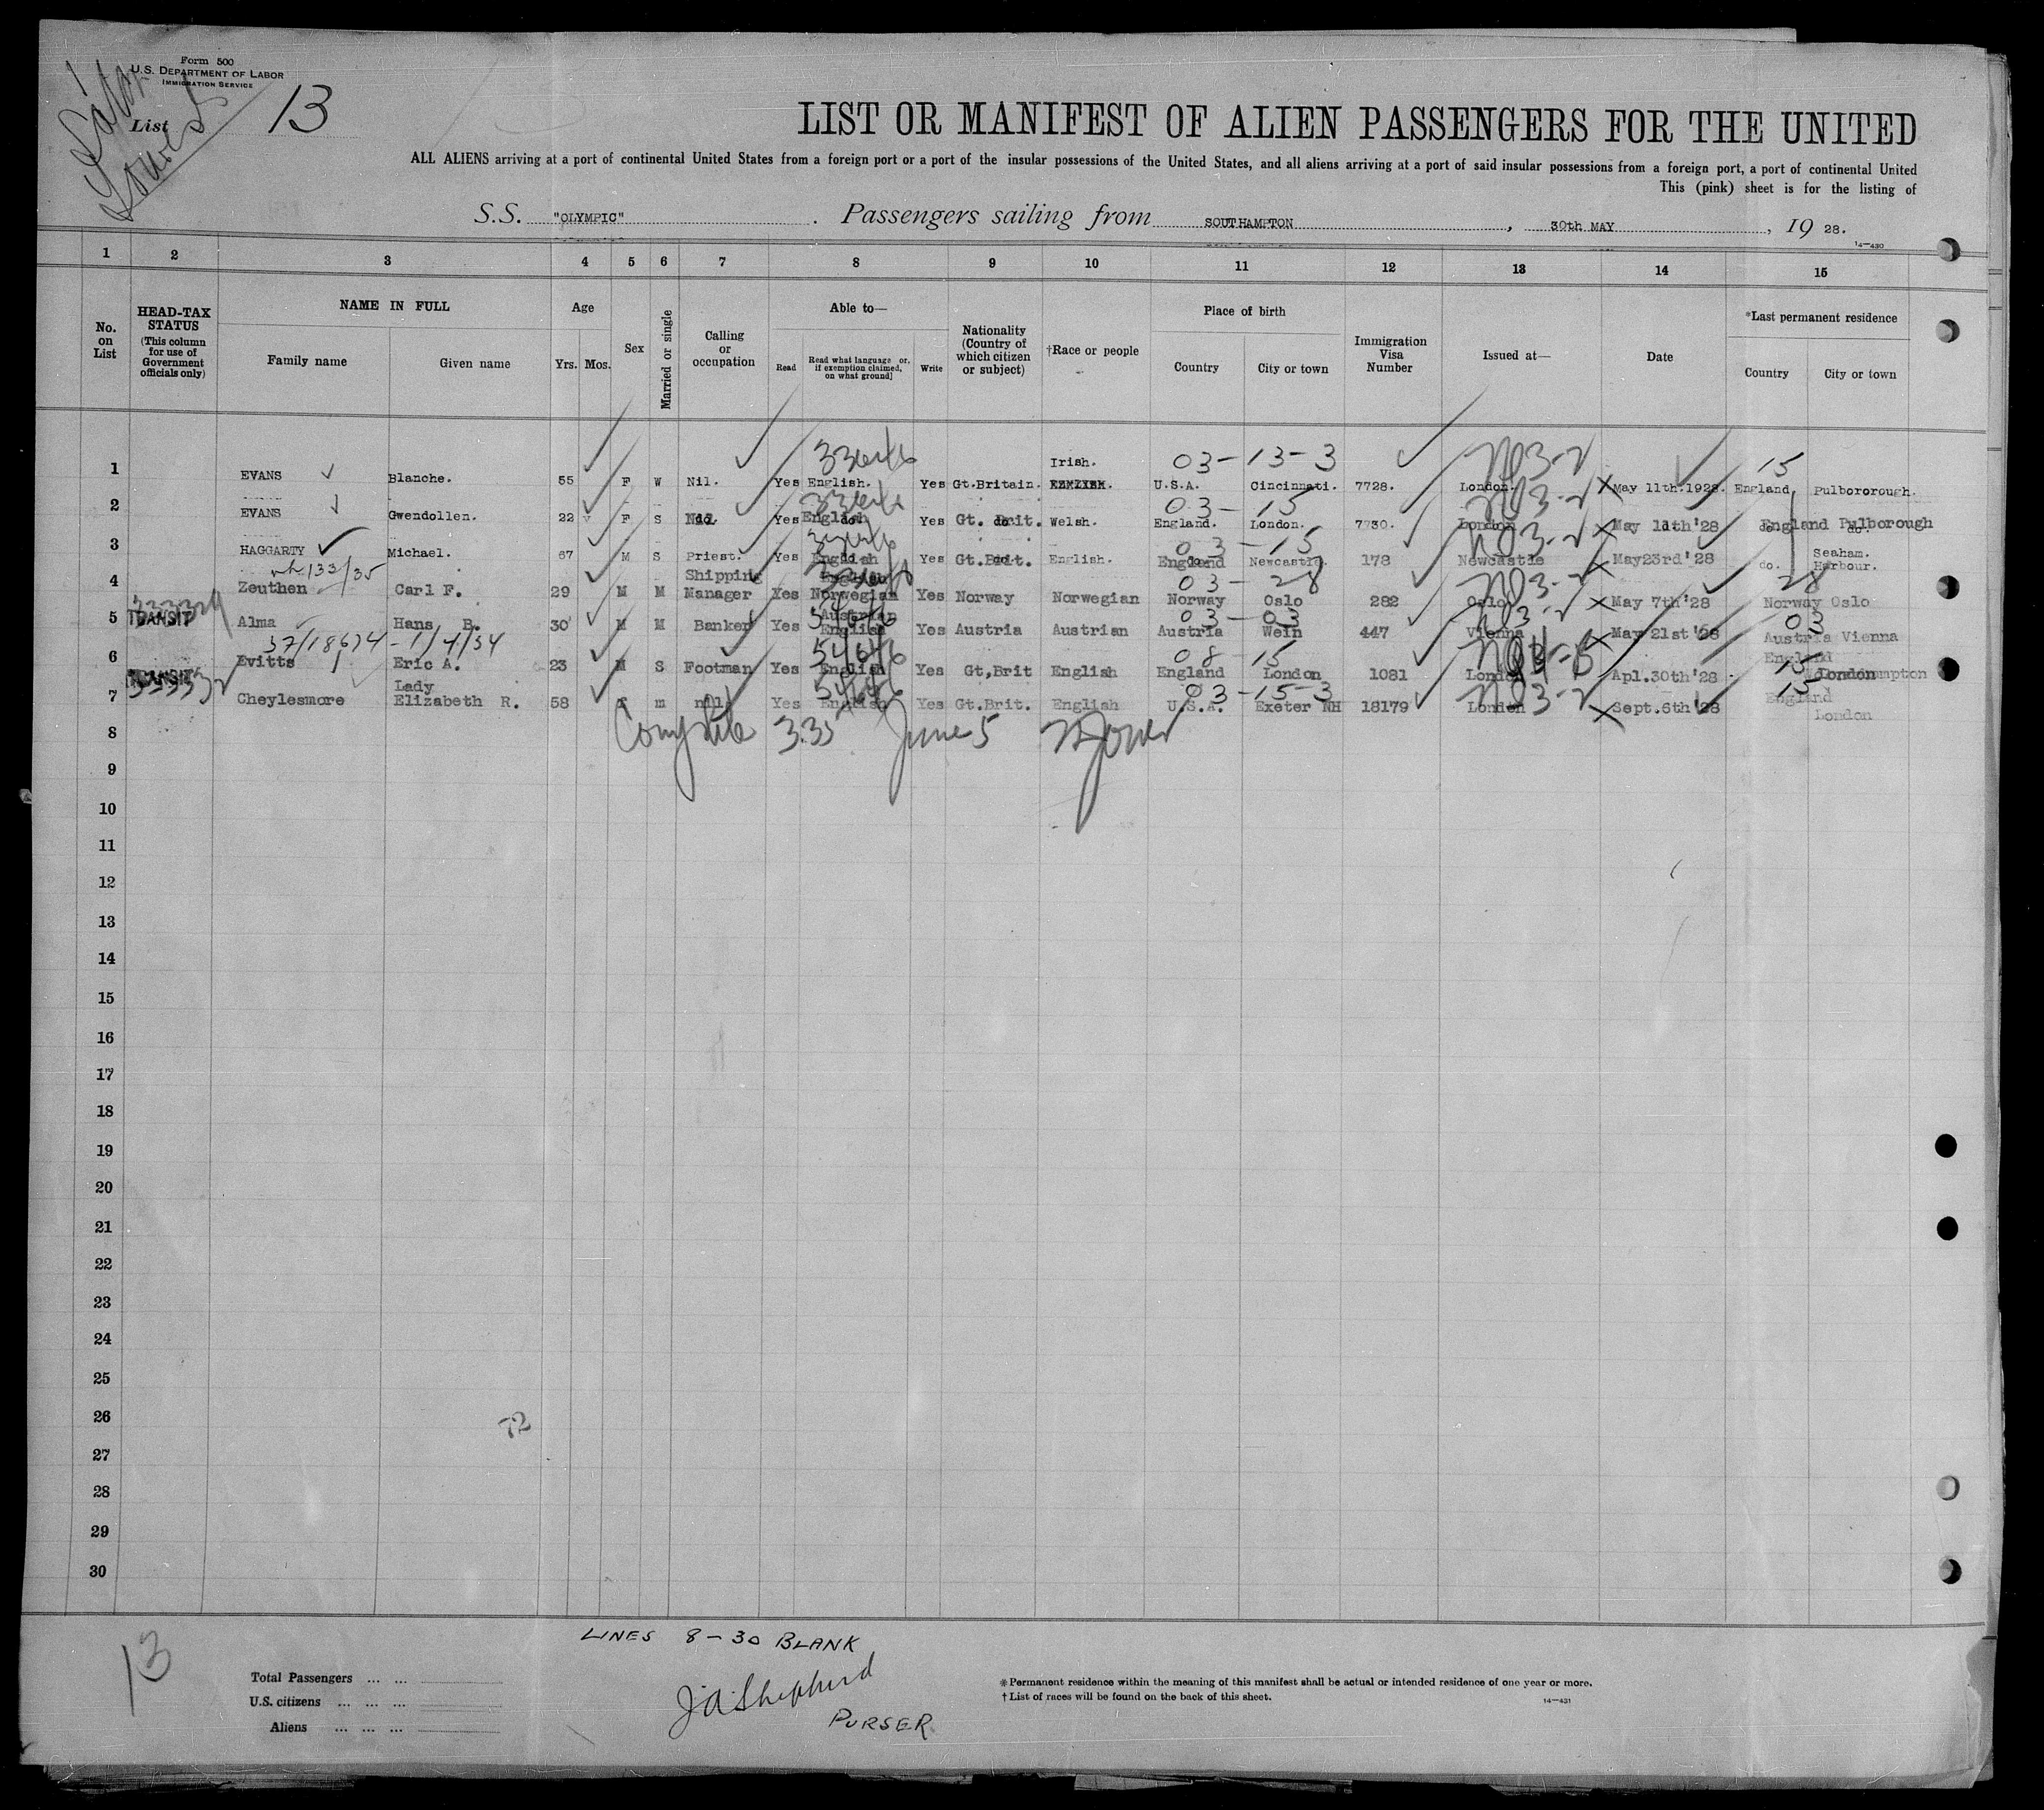 Form 500
U.S. DEPARTMENT OF LABOR
IMMIGRATION SERVICE
List 13
LIST OR MANIFEST OF ALIEN PASSENGERS FOR THE UNITED
ALL ALIENS arriving at a port of continental United States from a foreign port or a port of the insular possessions of the United States, and all aliens arriving at a port of said insular possessions from a foreign port, a port of continental United
This (pink) sheet is for the listing of
S.S. "OLYMPIC" . Passengers sailing from SOUTHAMPTON , 30th MAY , 19 28.
14—430
1 2 3 4 5 6 7 8 9 10 11 12 13 14 15
No. on List
HEAD-TAX STATUS (This column for use of Government officials only)
NAME IN FULL
Family name Given name
Age
Yrs. Mos.
Sex
Married or single
Calling or occupation
Able to—
Read Read what language or, if exemption claimed, on what ground] Write
Nationality (Country of which citizen or subject)
†Race or people
Place of birth
Country City or town
Immigration Visa Number
Issued at—
Date
*Last permanent residence
Country City or town
Irish. 03-13-3 15
1 EVANS Blanche. 55 F W Nil. Yes English. Yes Gt.Britain. U.S.A. Cincinnati. 7728. London. May 11th.1928. England Pulbororough.
03-15
2 EVANS Gwendollen. 22 F S Yes English Yes Gt. Brit. Welsh. England. London. 7730. London May 11th '28 England Pulborough
03-15
3 HAGGARTY Michael. 67 M S Priest. Yes English Yes Gt.Brit. English. England Newcastle. 178 Newcastle May23rd '28 do. Seaham. Harbour.
133/35 03-28 28
4 Zeuthen Carl F. 29 M M Shipping Manager Yes Norwegian Yes Norway Norwegian Norway Oslo 282 Oslo May 7th '28 Norway Oslo
03-03 03
5 TRANSIT Alma Hans B. 30 M M Banker Yes English Yes Austria Austrian Austria Wein 447 Vienna May 21st '28 Austria Vienna
37/18674-1/4/34 08-15 15
6 Evitts Eric A. 23 M S Footman Yes English Yes Gt,Brit English England London 1081 London Apl.30th '28 England London
03-15-3 15
7 TRANSIT Cheylesmore Lady Elizabeth R. 58 F m nil Yes English Yes Gt.Brit. English U.S.A. Exeter NH 18179 London Sept.6th '28 England London
8 3.35 June 5
9
10
11
12
13
14
15
16
17
18
19
20
21
22
23
24
25
26 72
27
28
29
30
LINES 8-30 BLANK
13
Total Passengers ... ...
U.S. citizens ... ... ...
Aliens ... ... ...
J A Shepherd
PURSER
* Permanent residence within the meaning of this manifest shall be actual or intended residence of one year or more.
† List of races will be found on the back of this sheet.
14—431